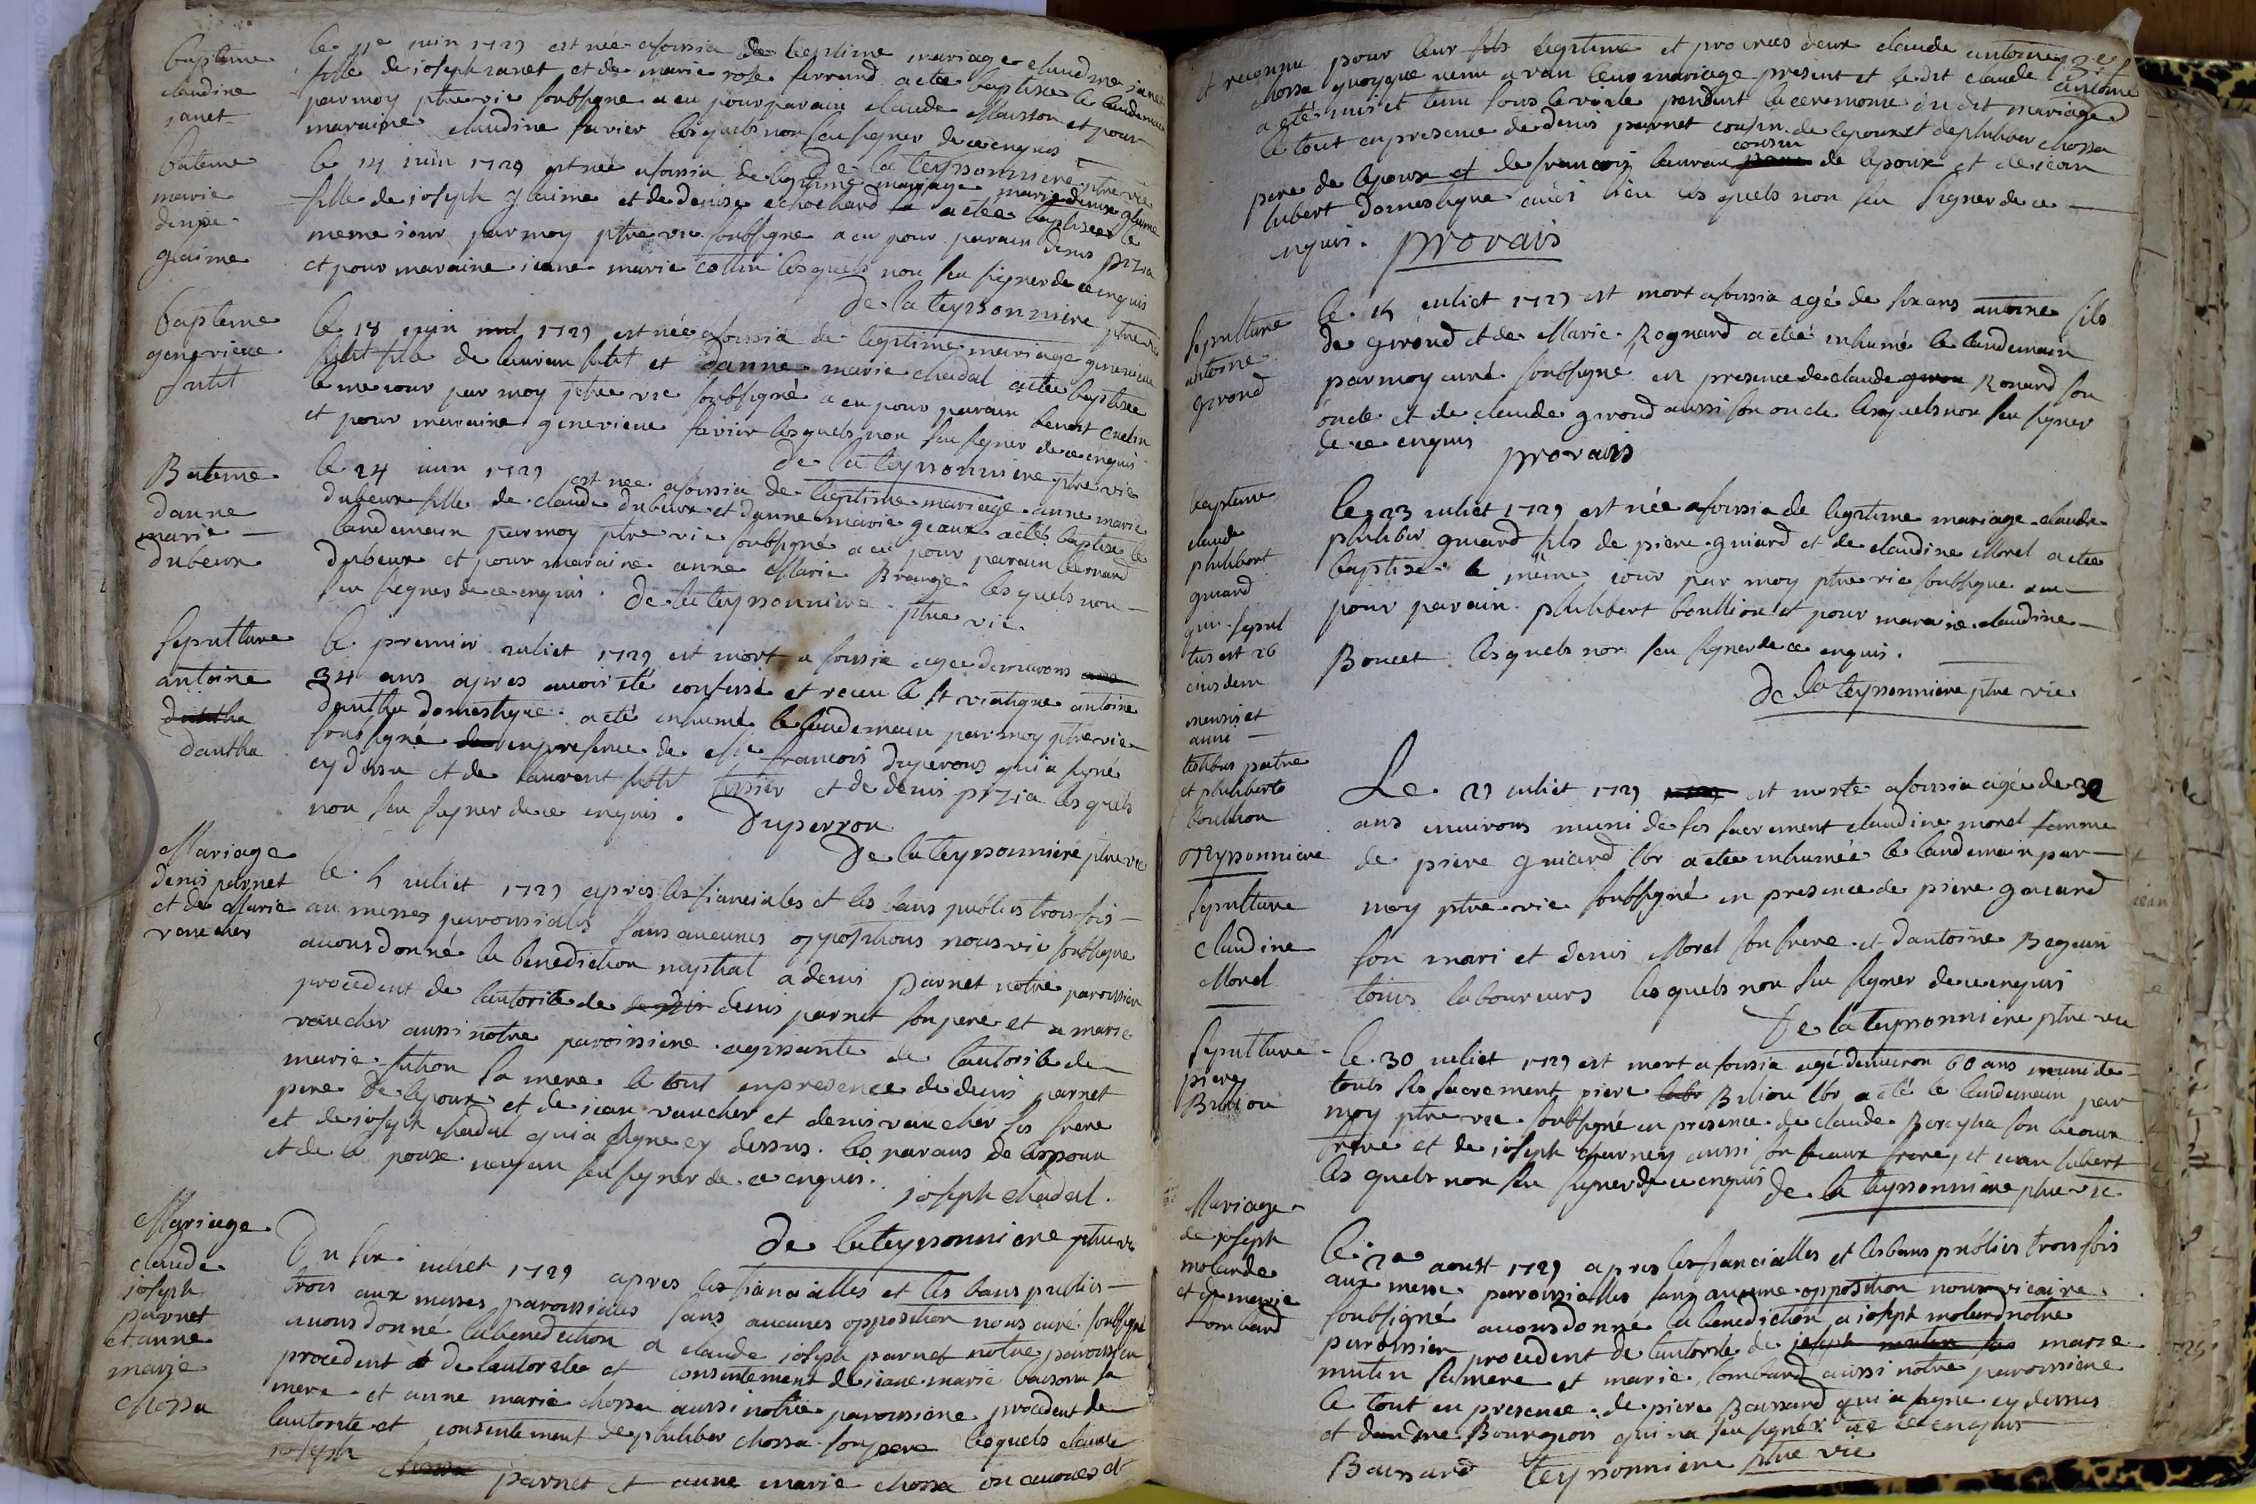 bapteme
claudine
janet
le 11e juin 1729 est née a foissia de legitime mariage claudine janet
fille de joseph janet et de marie rose ferrand a etée baptisée le landemain
par moy ptre vic soubsigne a eu pour parain claude Maistor et pour
maraine claudine favier lesquels non seu signer de ce enquis
de la teyssonniere ptre vic
bateme
marie
denise
glaime
le 14 juin 1729 est née a foissia de legitime mariage marie denise glaime
fille de joseph glaime et de denise echochard a etée baptisée le
meme jour par moy ptre vic soubsigne a eu pour parain denis pizia
et pour maraine jeane marie collin lesquels non seu signer de ce enquis
de la teyssonniere ptre vic
bapteme
genevieve
putit
le 18 juin 1729 est née a foissia de legitime mariage genevieve
putit fille de lauran putit et danne marie chadal a etée baptisée
le me jour par moy ptre vic soubsigné a eu pour parain benoit
et pour maraine genevieve favier lesquels non seu signer de ce enquis
de la teyssonniere ptre vic
Bateme
danne
marie
dubeux
le 24 juin 1729 est née a foissia de legitime mariage anne marie
dubeux fille de claude dubeux et danne marie geaux a etée baptisée le
landemain par moy ptre vic soubsigné a eu pour parain bernard
dubeux et pour maraine anne Marie Brange lesquels non
seu signer de ce enquis. de la teyssonniere ptre vic
sepulture
antoine
dantha
le premier juliet 1729 est mort a foissia agée denvirons
34 ans apres avoir été confessé et receu le st viatique antoine
dantha domestique a eté inhumé le landemain par moy ptre vic
sousigné en presence de francois duperons qui a signé
cy dessu et de laurent putit tissier et de denis pizia lesquels
non seu signer de ce enquis. Duperron
De la teyssonniere ptre vic
Mariage
denis parnet
et de Marie
vaucher
le 5 juliet 1729 apres les fiancialles et les bans publies trois fois
au messes paroissiales sans aucunes oppositions nous vic soubsigne
avons donné la benediction nuptial a denis parnet notre paroissien
procedent de lautorité de denis parnet son pere et a marie
vaucher aussi notre paroissiene agissante de lautorité de
marie pution sa mere le tout en presence de denis parnet
pere de lepoux et de jean vaucher et denis vaucher ses frere
et de joseph chadal qui a signe cy dessus. les parans de lepoux
et de le pouse nayan seu signer de ce enquis.
joseph chadal.
de la teyssonniere ptre vic
Mariage
claude
joseph
parnet
et anne
marie
chossa
Du six juliet 1729 apres les fiancialles et les bans publies
trois aux messes paroissiales sans aucunes opposition nous curé soubsigne
avons donné la benediction a claude joseph parnet notre paroissien
procedent de lautoritée et consentement de jeane marie buisson sa
mere et anne marie chossa aussi notre paroissiene procedent de
lautorité et consentement de philiber chossa son pere lesquels claude
joseph parnet et anne marie chossa on avoués et
et reconnu pour leur fils legitime et procrées deux claude antoine
chossa quoyque venu avan leur mariage present et le dit claude antoine
a eté mis et tenu sous le voile pendent la ceremonie du dit mariage
le tout en presence de denis parnet cousin de lepoux et de philiber chossa
pere de lepouse et de francois lauran cousin de lepoux et de jean
lubert domestique audit lieu lesquels non seu signer de ce
enquis. provais
sepulture
antoine
giroud
le 15 juliet 1729 est mort a foissia agé de six ans antoine fils
de giroud et de Marie Rognard a etée inhumé le landemain
par moy curé soubsigne en presence de claude Ronard son
oncle et de claude giroud aussi son oncle lesquels non seu signer
de ce enquis provais
bapteme
claude
philibert
guiard
qui sepul
tus est 26
eiusdem
mensis et
anni
testibus patre
et philiberto
boullion
teyssonniere
le 23 juliet 1729 est née a foissia de legitime mariage claude
philiber guiard fils de piere guiard et de claudine Morel a etée
baptisé le même jour par moy ptre vic soubsigne a eu
pour parain philibert boullion et pour maraine claudine
Boucet lesquels non seu signer de ce enquis.
de la teyssonniere ptre vic
sepulture
claudine
Morel
Le 29 juliet 1729 est morte a foissia agée de 32
ans environs muni de ses sacrement claudine morel femme
de piere guiard lbr a etée inhumée le landemain par
moy ptre vic soubsigné en presence de piere guiard
son mari et denis Morel son frere et dantoine Beguin
touts laboureurs lesquels non seu signer de ce enquis
De la teyssonniere ptre vic
sepulture
piere
Bilion
le 30 juliet 1729 est mort a foissia agé denviron 60 ans muni de
touts ses sacrement piere Bilion lbr a eté le landemain par
moy ptre vic soubsigné en presence de claude Boreyha son beaux
frere et de joseph charney aussi son beaux frere, et jean lubert
lesquels non seu signer de ce enquis de la teyssonniere ptre vic
Mariage
de joseph
molarde
et de marie
Lombard
le 2e aoust 1729 apres les fiancialles et les bans publies trois fois
aux messe paroissialles sans aucune opposition nous vicaire
soubsigné avons donne la benediction a joseph molard notre
paroissien procedent de lautorité de marie
mutin sa mere et marie lombard aussi notre paroissiene
le tout en presence de piere Baissard qui a signe cy dessus
et Bourgeois qui na seu signer de ce enquis
Baissard teyssonniere ptre vic